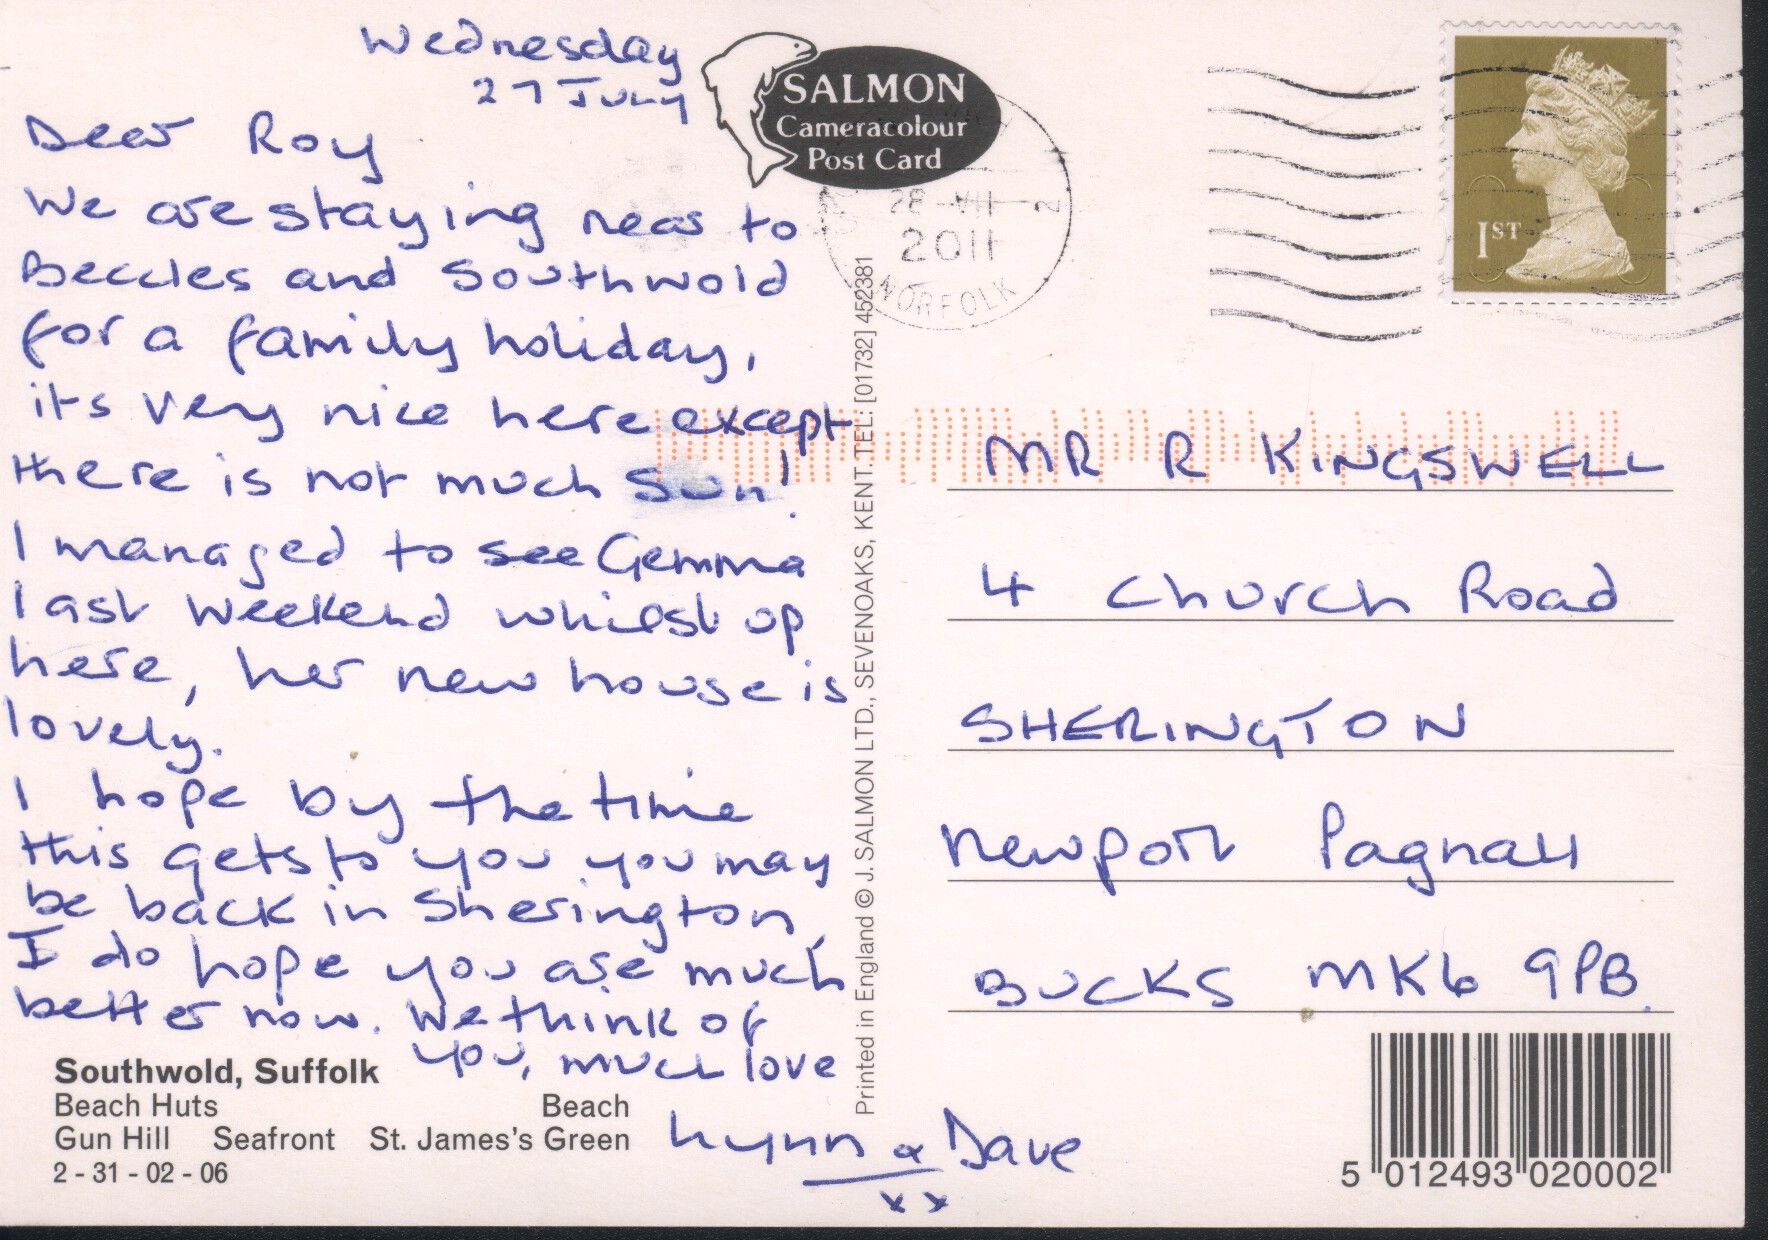 Wednesday
27 July
Dear Roy
We are staying near to
Beccles and Southwold
for a family holiday,
its very nice here except
there is not much sun!
I managed to see Gemma
last weekend whilst up
here, her new house is
lovely.
I hope by the time
this gets to you you may
be back in Sherington,
I do hope you are much
better now. We think of
you, much love
Lynn & Dave
x x
Southwold, Suffolk
Beach Huts Beach
Gun Hill Seafront St. James's Green
2 - 31 - 02 - 06
SALMON
Cameracolour
Post Card
28 - VII
2011
NORFOLK
Printed in England © J. SALMON LTD., SEVENOAKS, KENT. TEL: [01732] 452381
1ST
MR R KINGSWELL
4 Church Road
SHERINGTON
Newport Pagnall
BUCKS MK6 9PB.
5 012493 020002